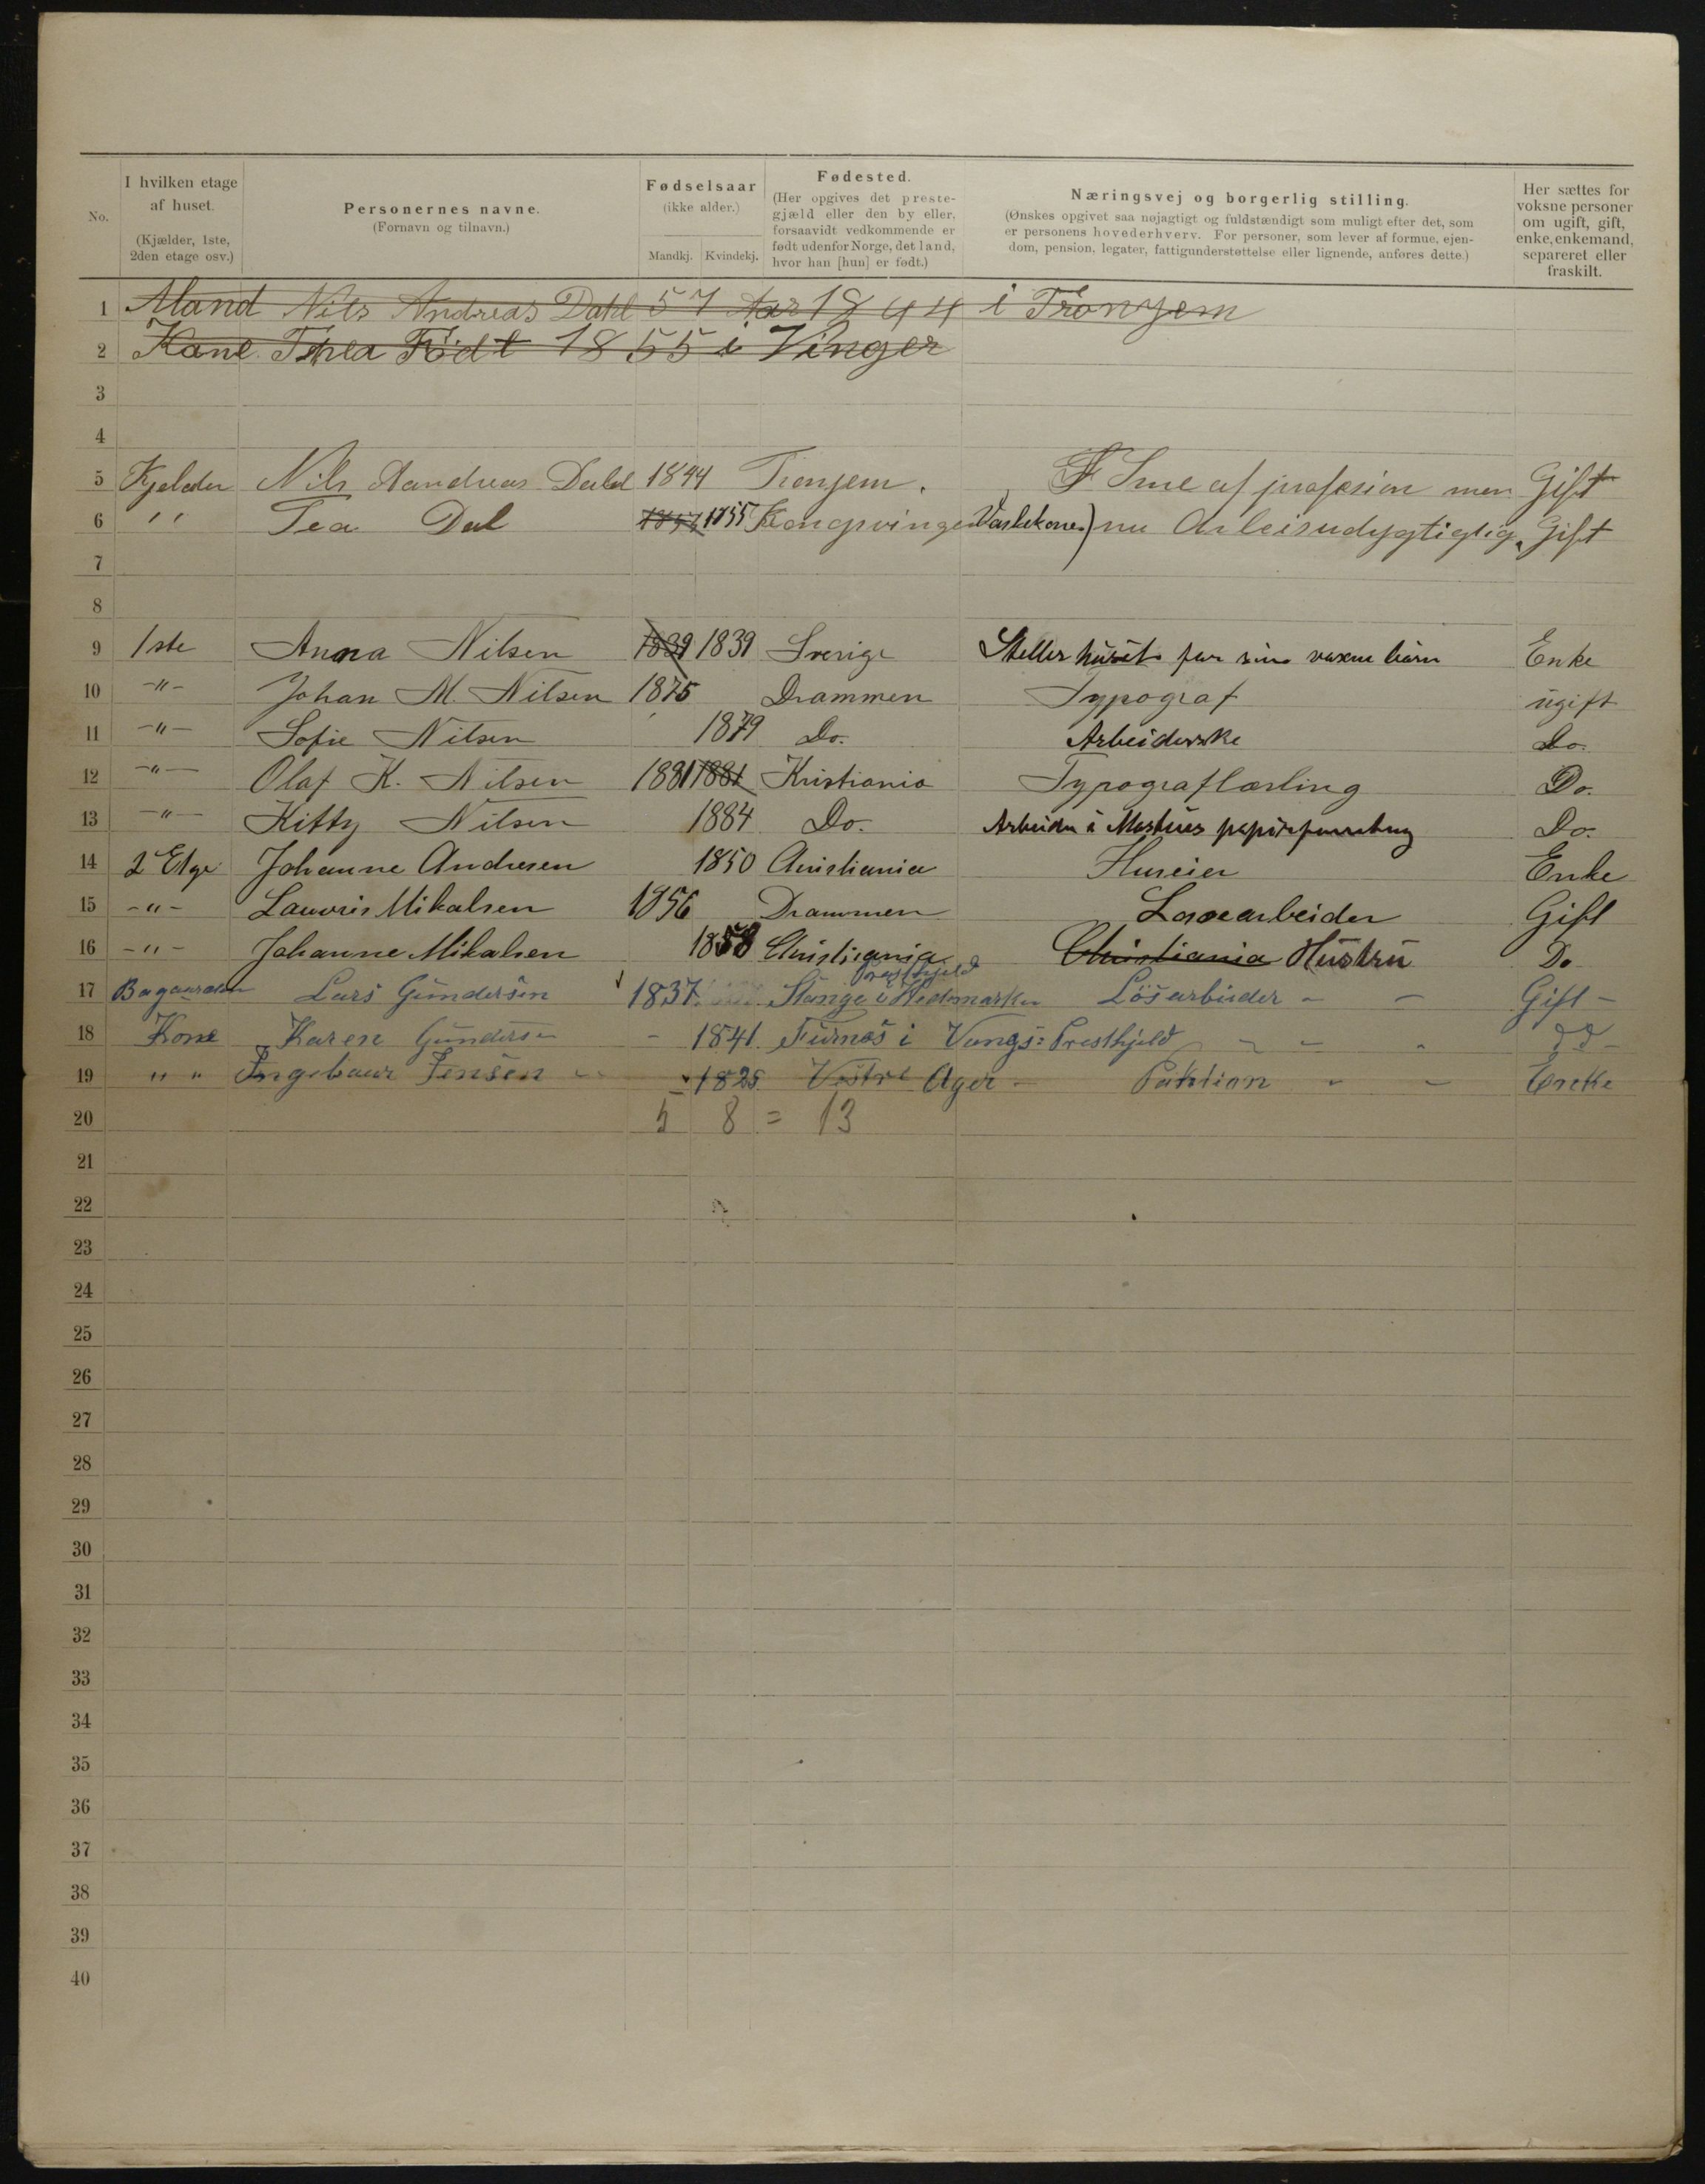 No.
I hvilken etage af huset. (Kjælder, 1ste, 2den etage osv.)
Personernes navne. (Fornavn og tilnavn.)
Fødselsaar (ikke alder.) Mandkj. Kvindekj.
Fødested. (Her opgives det prestegjæld eller den by eller, forsaavidt vedkommende er født udenfor Norge, det land, hvor han [hun] er født.)
Næringsvej og borgerlig stilling. (Ønskes opgivet saa nøjagtigt og fuldstændigt som muligt efter det, som er personens hovederhverv. For personer, som lever af formue, ejendom, pension, legater, fattigunderstøttelse eller lignende, anføres dette.)
Her sættes for voksne personer om ugift, gift, enke, enkemand, separeret eller fraskilt.
1 Mand Nils Andreas Dahl 57 Aar 1844 i Tronyem
2 Kone Thea Födt 1855 i Vinger
3
4
5 Kjelder Nils Aandreas Dahl 1844 Tronjem. Sme af profesion men Gift
6 " Tea Dal 1855 Kongsvinger Vaskekone) nu Arbeisudygtiglig. Gift
7
8
9 1ste Anna Nilsen 1839 1839 Sverige Steller huset for sine voxne børn Enke
10 -"- Johan M. Nilsen 1875 Drammen Typograf ugift
11 -"- Sofie Nilsen 1879 Do. Arbeiderske Do.
12 -"- Olaf K. Nilsen 1881 1881 Kristiania Typograflærling Do.
13 -"- Kitty Nilsen 1884 Do. Arbeider i papirforretning Do.
14 2 Etge Johanne Andresen 1850 Christiania Huseier Enke
15 -"- Lauvris Mikalsen 1856 Drammen Losearbeider Gift
16 -"- Johanne Mikalsen 1858 Christiania Christiania Hustru Do
17 Lars Gundersen 1837 Stange i Hedemarken Presthjeld Lösarbeider - - Gift -
18 Kone Karen Gundersen - 1841. Furnes i Vangs= Presthjeld - - - dd -
19 " " Ingebaur Jensen - 1825 Vestre Ager - - - Encke
20 5 8 = 13
21
22
23
24
25
26
27
28
29
30
31
32
33
34
35
36
37
38
39
40